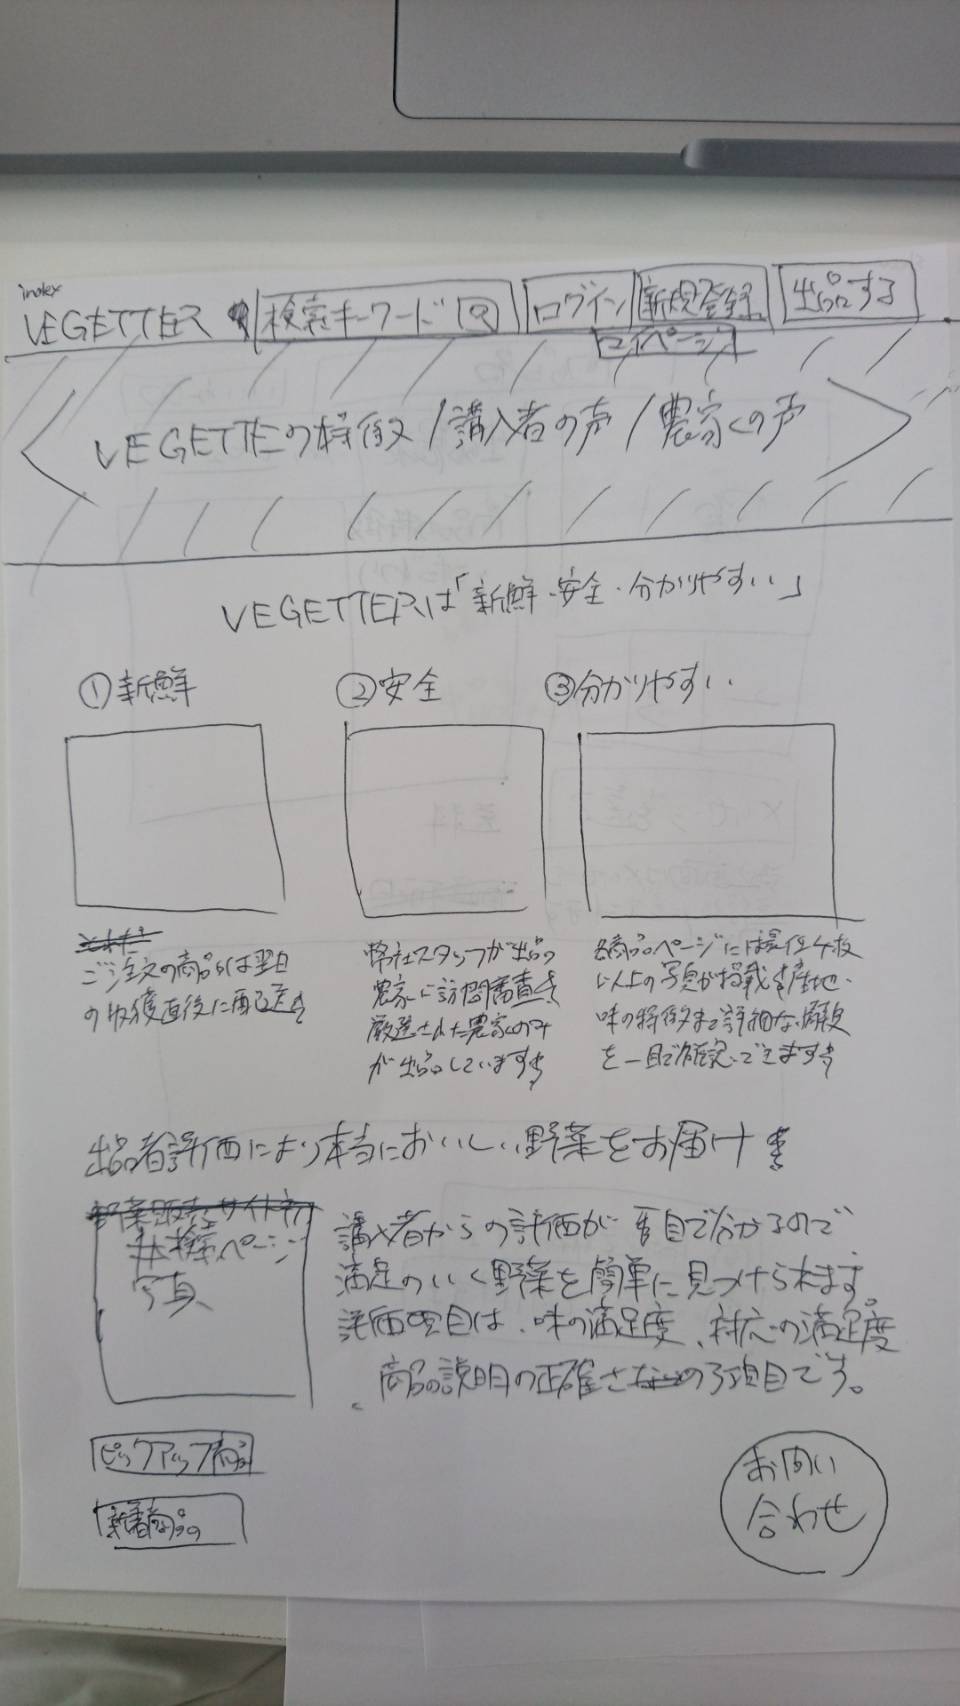 index
VEGETTER 検索キーワード ログイン 新規登録 出品する
マイページ
VEGETTEの特徴 / 購入者の声 / 農家の声
VEGETTERは「新鮮・安全・分かりやすい」
①新鮮 ②安全 ③分かりやすい
ご注文の商品は翌日
の収穫直後に配送!
弊社スタッフが出品の
農家に訪問審査!
厳選された農家のみ
が出品しています!
各商品ページには最低4枚
以上の写真が掲載!産地、
味の特徴まで詳細な
を一目で確認できます!
出品者評価により本当においしい野菜をお届け!
野菜販売サイト初
検索ページ
写真
購入者からの評価が一目で分かるので
満足のいく野菜を簡単に見つけられます。
評価項目は、味の満足度、対応の満足度
、商品説明の正確さの3項目です。
ピックアップ商品
新着商品
お問い
合わせ